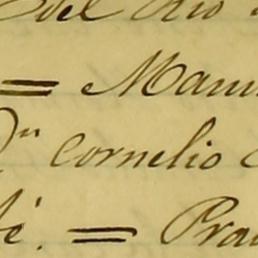 del Rio
= Manu
Dⁿ Cornelio
é. = Pra